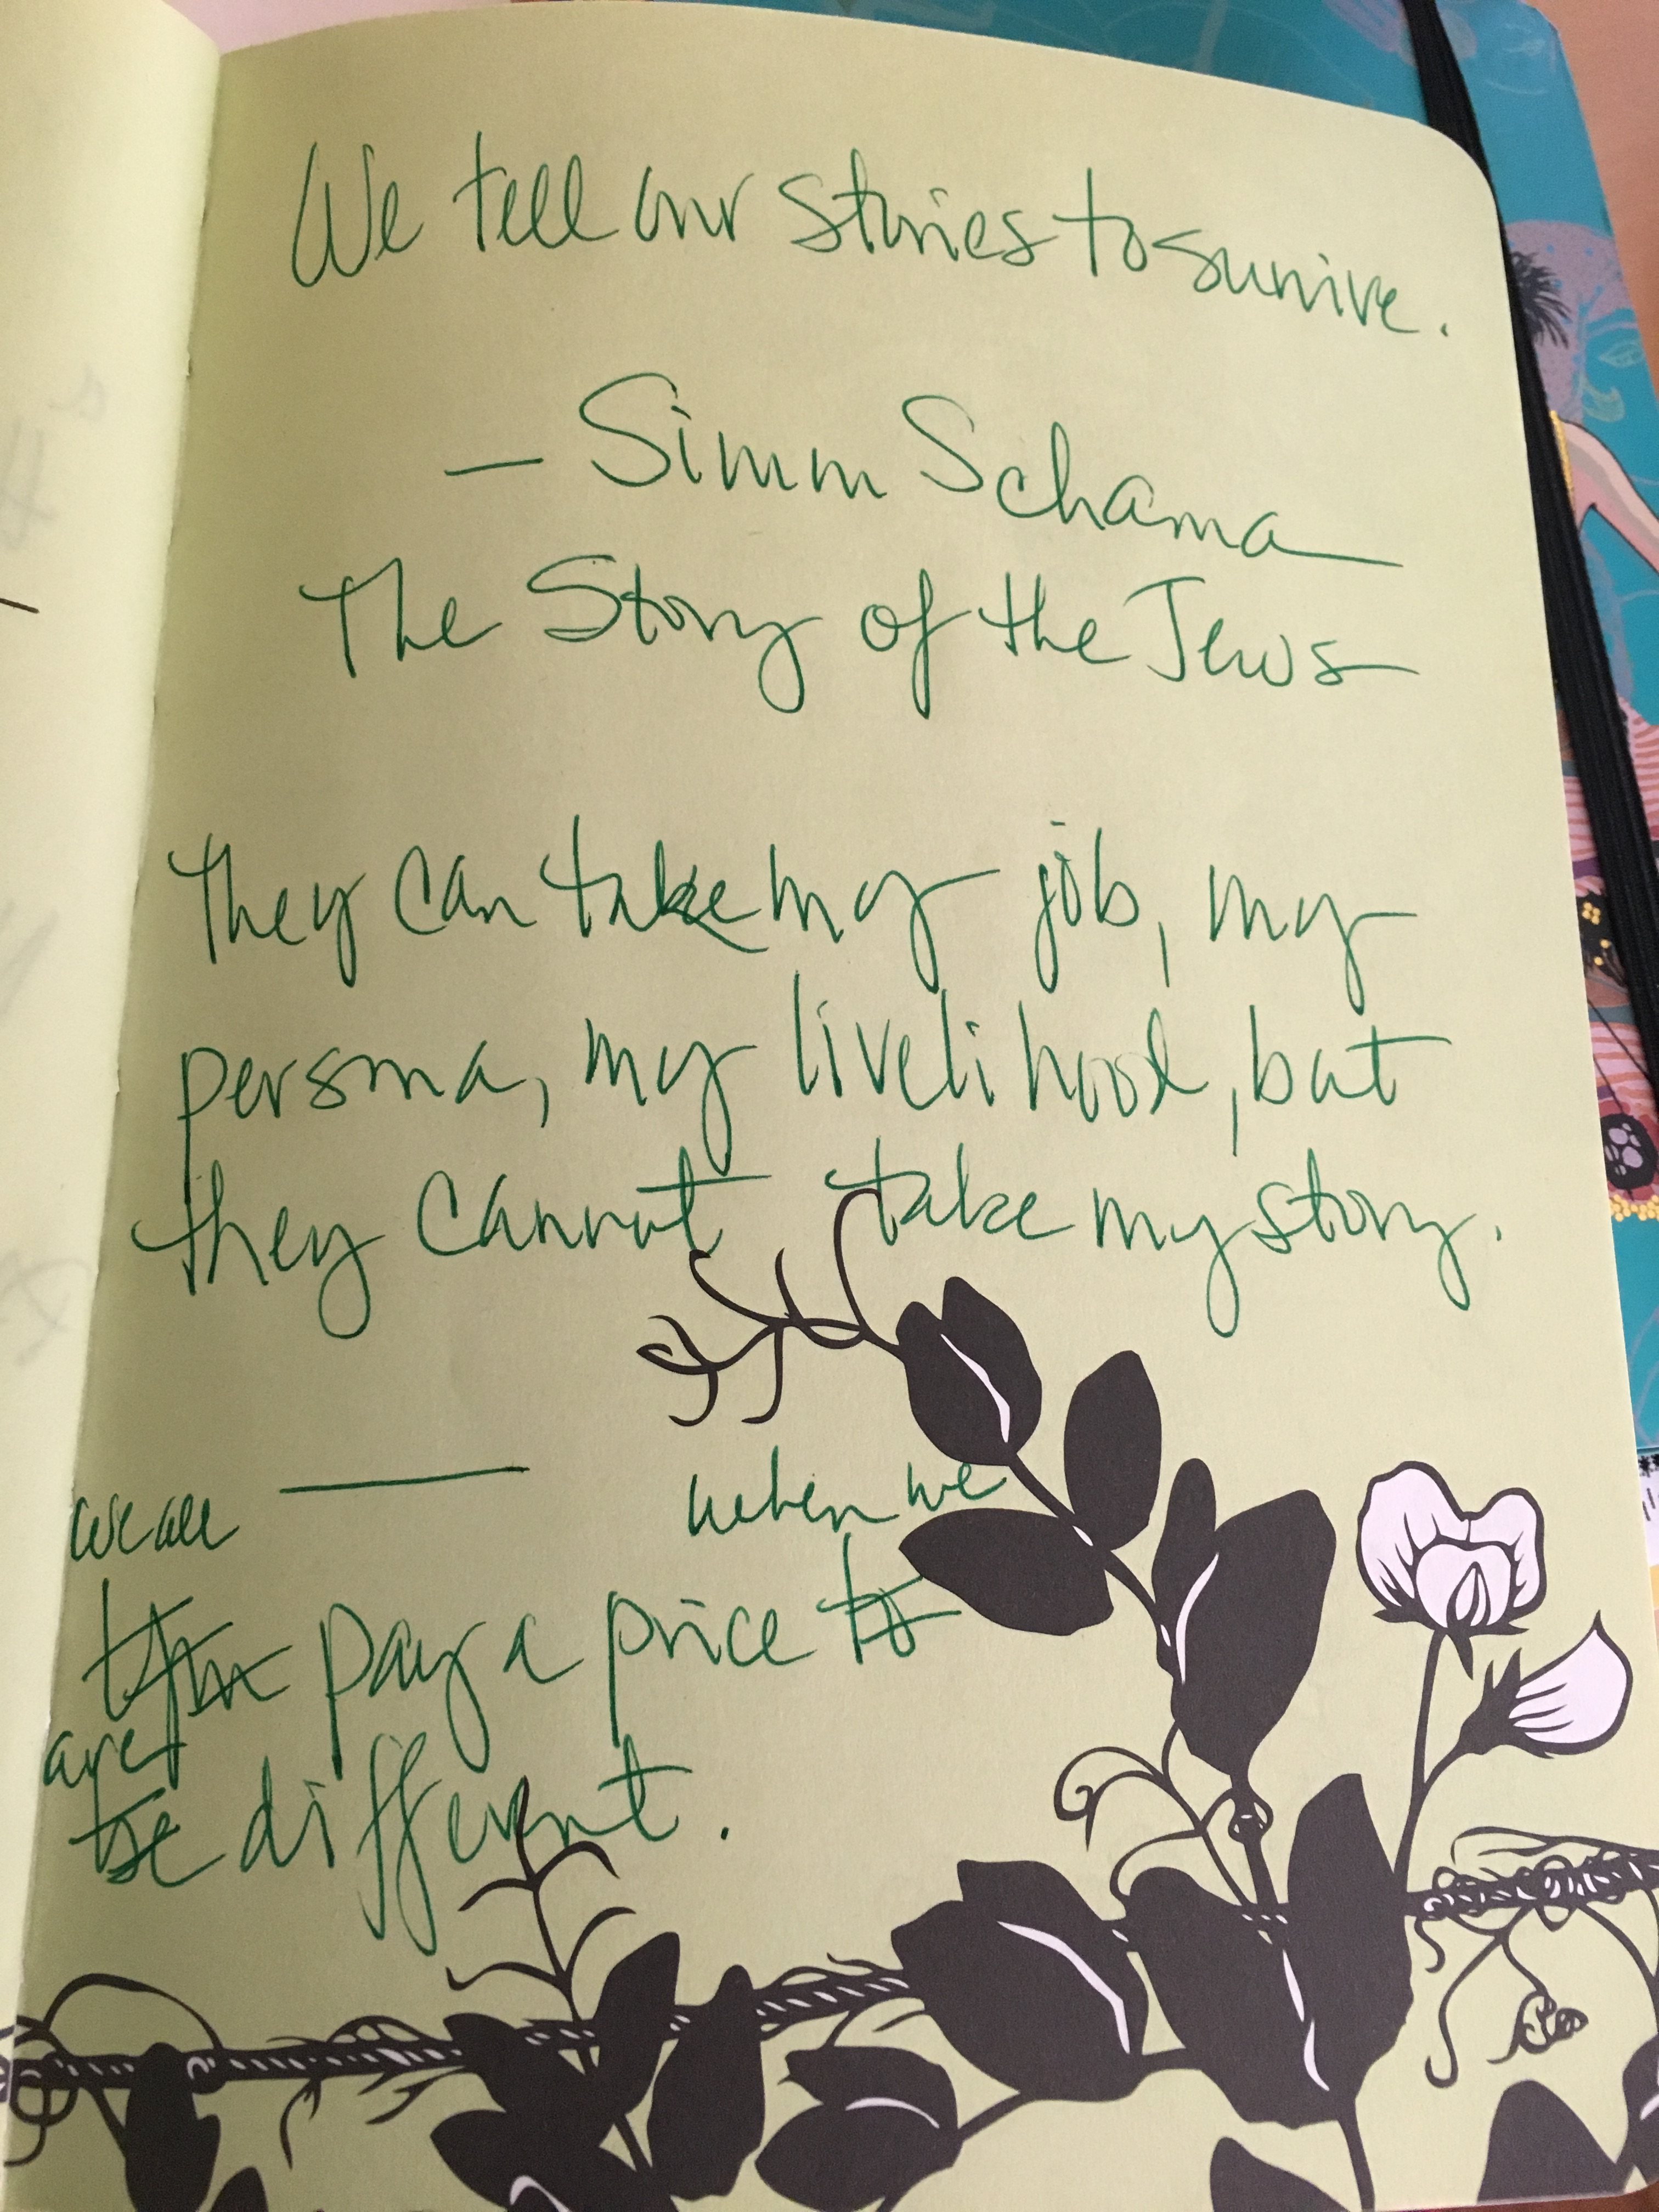 We tell our stories to survive.
— Simon Schama
The Story of the Jews
They can take my job, my
persona, my livelihood, but
they cannot take my story.
we all when we
pay a price to
are
be different.